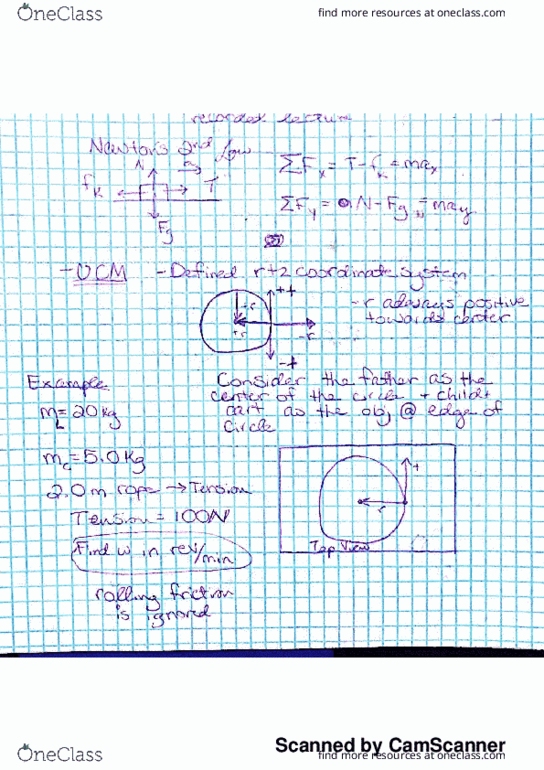 OneClass
find more resources at oneclass.com
recorded lecture
Newton's 2nd Law
N
fk
T
Fg
ΣFx = T - fk = max
ΣFy = N - Fg = may
- UCM - Defined r+z coordinate system
+t
+r
-r
-t
- r always positive
towards center
Example
Consider the father as the
center of the circle + child +
cart as the obj @ edge of
circle
mL = 20 kg
mc = 5.0 kg
2.0 m rope → Tension
Tension = 100N
Find ω in rev/min
t
r
Top View
rolling friction
is ignored
Scanned by CamScanner
OneClass
find more resources at oneclass.com